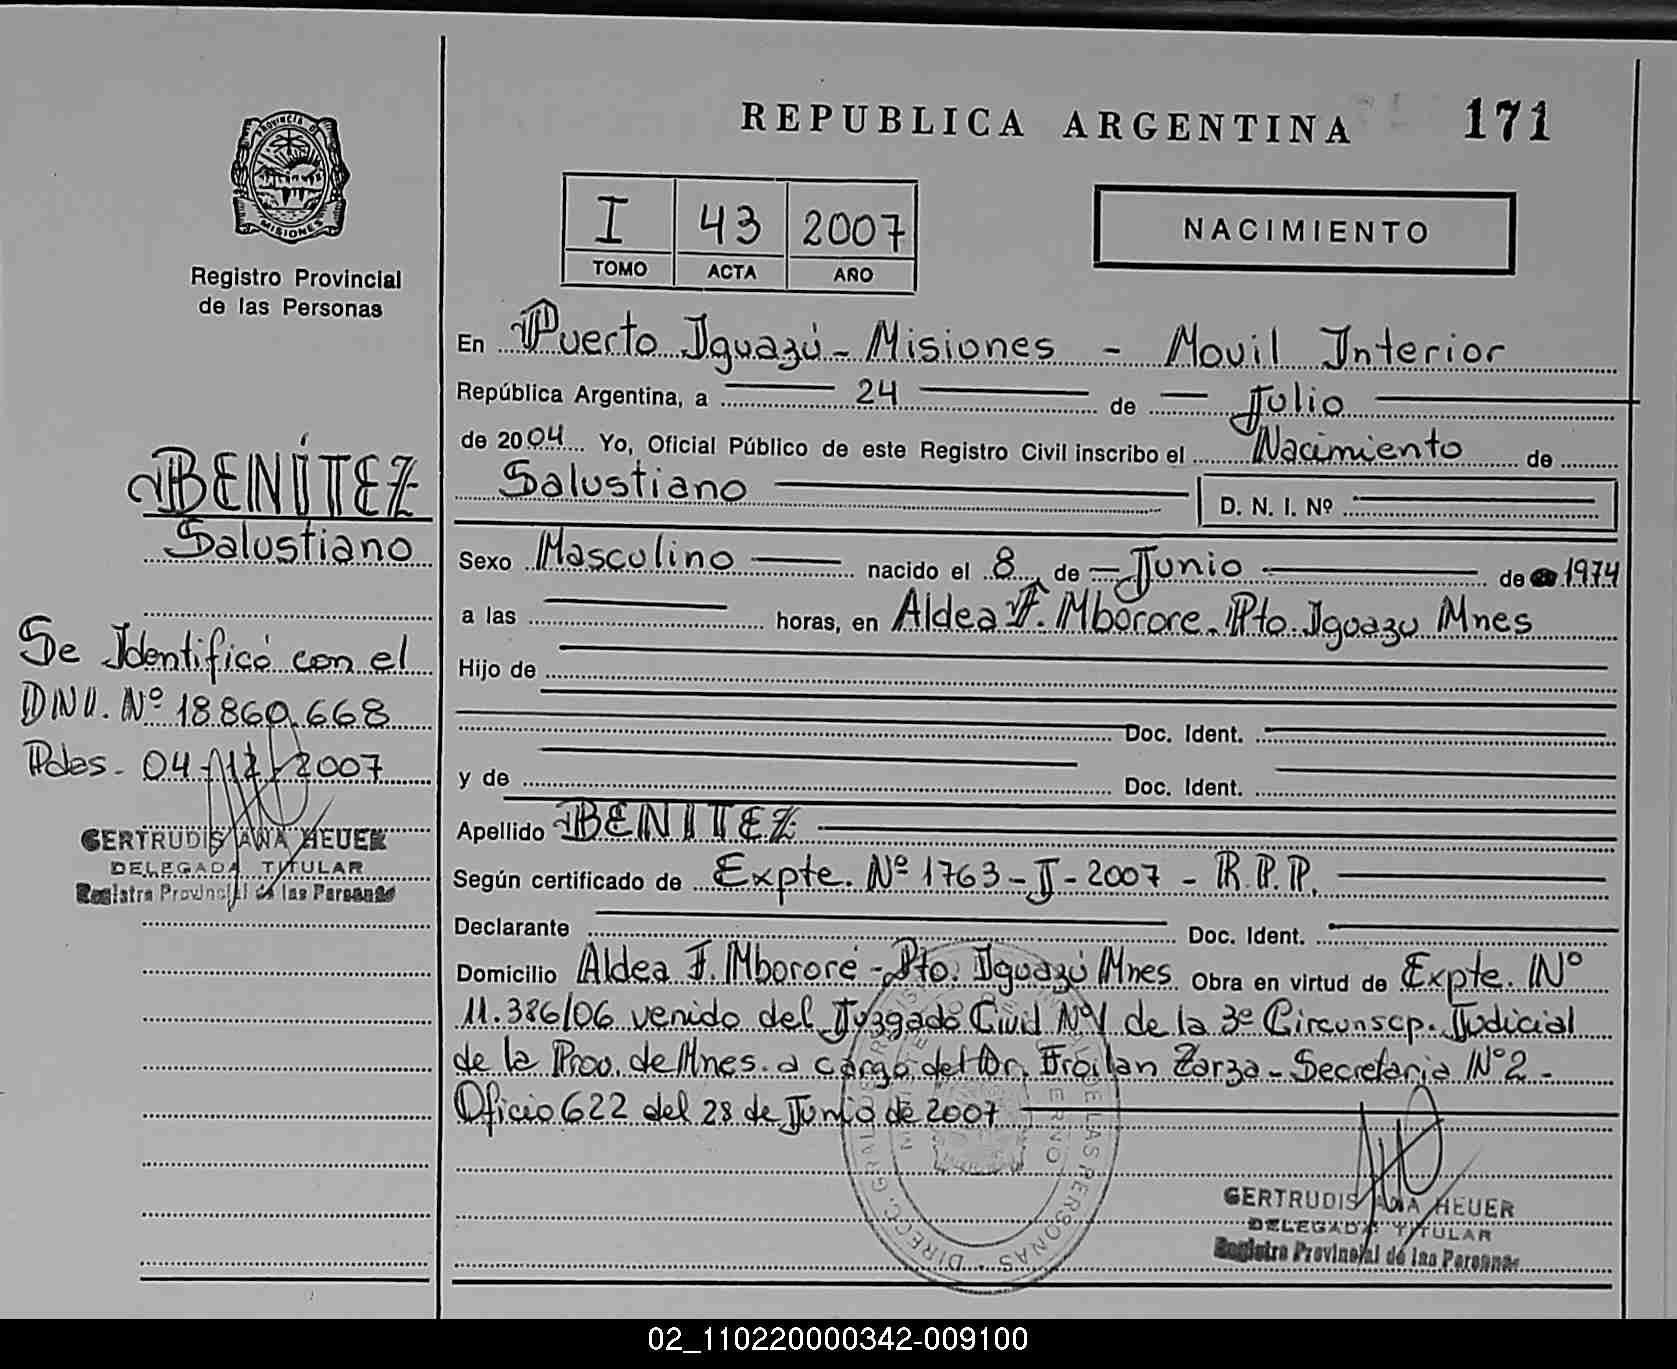 REPUBLICA ARGENTINA 171
PROVINCIA DE
MISIONES
Registro Provincial
de las Personas
I 43 2007
TOMO ACTA AÑO
NACIMIENTO
En Puerto Iguazú - Misiones - Movil Interior
República Argentina, a 24 de Julio
de 2004 Yo, Oficial Público de este Registro Civil inscribo el Nacimiento de
Salustiano D. N. I. Nº
Sexo Masculino nacido el 8 de Junio de 1974
a las horas, en Aldea F. Mborore. Pto. Iguazu Mnes
Hijo de
Doc. Ident.
y de Doc. Ident.
Apellido BENITEZ
Según certificado de Expte. Nº 1763 - J - 2007 - R.P.P.
Declarante Doc. Ident.
Domicilio Aldea F. Mbororé - Pto. Iguazú Mnes Obra en virtud de Expte. Nº
11.386/06 venido del Juzgado Civil Nº1 de la 3º Circunscp. Judicial
de la Prov. de Mnes. a cargo del Dr. Froilan Zarza - Secretaria Nº2 -
Oficio 622 del 28 de Junio de 2007
GERTRUDIS ANA HEUER
DELEGADA TITULAR
Registro Provincial de las Personas
BENÍTEZ
Salustiano
Se Identificó con el
DNI. Nº 18.860.668
Pdas. 04-12-2007
GERTRUDIS ANA HEUER
DELEGADA TITULAR
Registro Provincial de las Personas
DE LAS PERSONAS
DIRECC. GRAL.
02_110220000342-009100